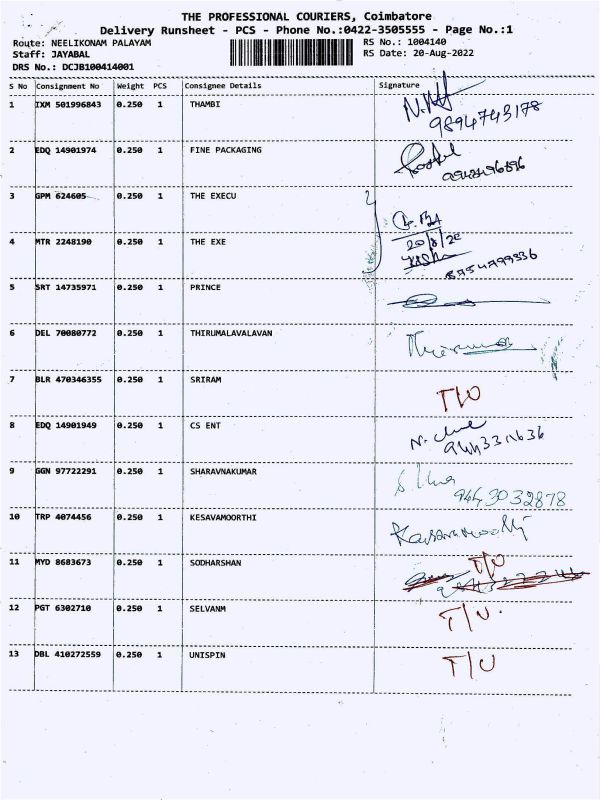 THE PROFESSIONAL COURIERS, Coimbatore
Delivery Runsheet - PCS - Phone No.:0422-3505555 - Page No.:1
Route: NEELIKONAM PALAYAM
Staff: JAYABAL
DRS No.: DCJB100414001
RS No.: 1004140
RS Date: 20-Aug-2022
S No Consignment No Weight PCS Consignee Details Signature
1 IXM 501996843 0.250 1 THAMBI
9894743178
2 EDQ 14901974 0.250 1 FINE PACKAGING
3 GPM 624605 0.250 1 THE EXECU
4 MTR 2248190 0.250 1 THE EXE
20/8/22
8754799336
5 SRT 14735971 0.250 1 PRINCE
6 DEL 70080772 0.250 1 THIRUMALAVALAVAN
7 BLR 470346355 0.250 1 SRIRAM T/O
8 EDQ 14901949 0.250 1 CS ENT
9 GGN 97722291 0.250 1 SHARAVNAKUMAR
9443032878
10 TRP 4074456 0.250 1 KESAVAMOORTHI Kesavamoorthi
11 MYD 8683673 0.250 1 SODHARSHAN T/O
12 PGT 6302710 0.250 1 SELVANM T/O.
13 DBL 410272559 0.250 1 UNISPIN T/O